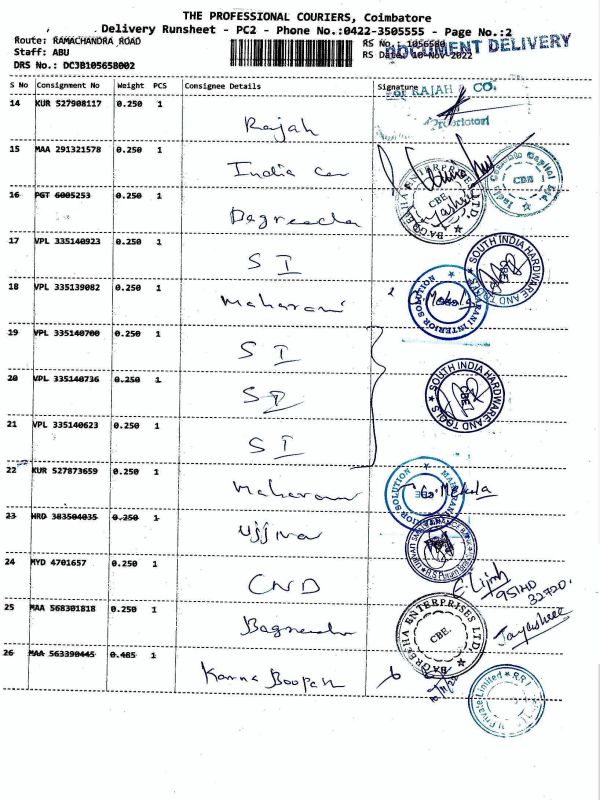 THE PROFESSIONAL COURIERS, Coimbatore
Delivery Runsheet - PC2 - Phone No.:0422-3505555 - Page No.:2
Route: RAMACHANDRA ROAD
RS No. : 1056580
DOCUMENT DELIVERY
Staff: ABU
RS Date: 10-Nov-2022
DRS No.: DC3B105658002
S No Consignment No Weight PCS Consignee Details Signature
For RAJAH & CO.
14 KUR 527908117 0.250 1 Rajah
Proprietor
15 MAA 291321578 0.250 1 India
CBE
16 PGT 6005253 0.250 1
BAGREEHA ENTERPRISES LTD.
CBE.
17 VPL 335140923 0.250 1 SI
SOUTH INDIA HARDWARE AND TOOLS
CBE
18 VPL 335139082 0.250 1 Maharani
MAHARANI INTERIOR SOLUTION
G. Mekala
19 VPL 335140700 0.250 1 SI
20 VPL 335140736 0.250 1 SI
SOUTH INDIA HARDWARE AND TOOLS
CBE
21 VPL 335140623 0.250 1 SI
22 KUR 527873659 0.250 1 Maharani
MAHARANI INTERIOR SOLUTION
CBE
G. Mekala
23 HRD 383504035 0.250 1 Ujjivan
24 MYD 4701657 0.250 1 CND
Lijith
25 MAA 568301818 0.250 1
BAGREEHA ENTERPRISES LTD.
CBE.
Jayashree
26 MAA 563390445 0.485 1 Kanna Boopan
Private Limited